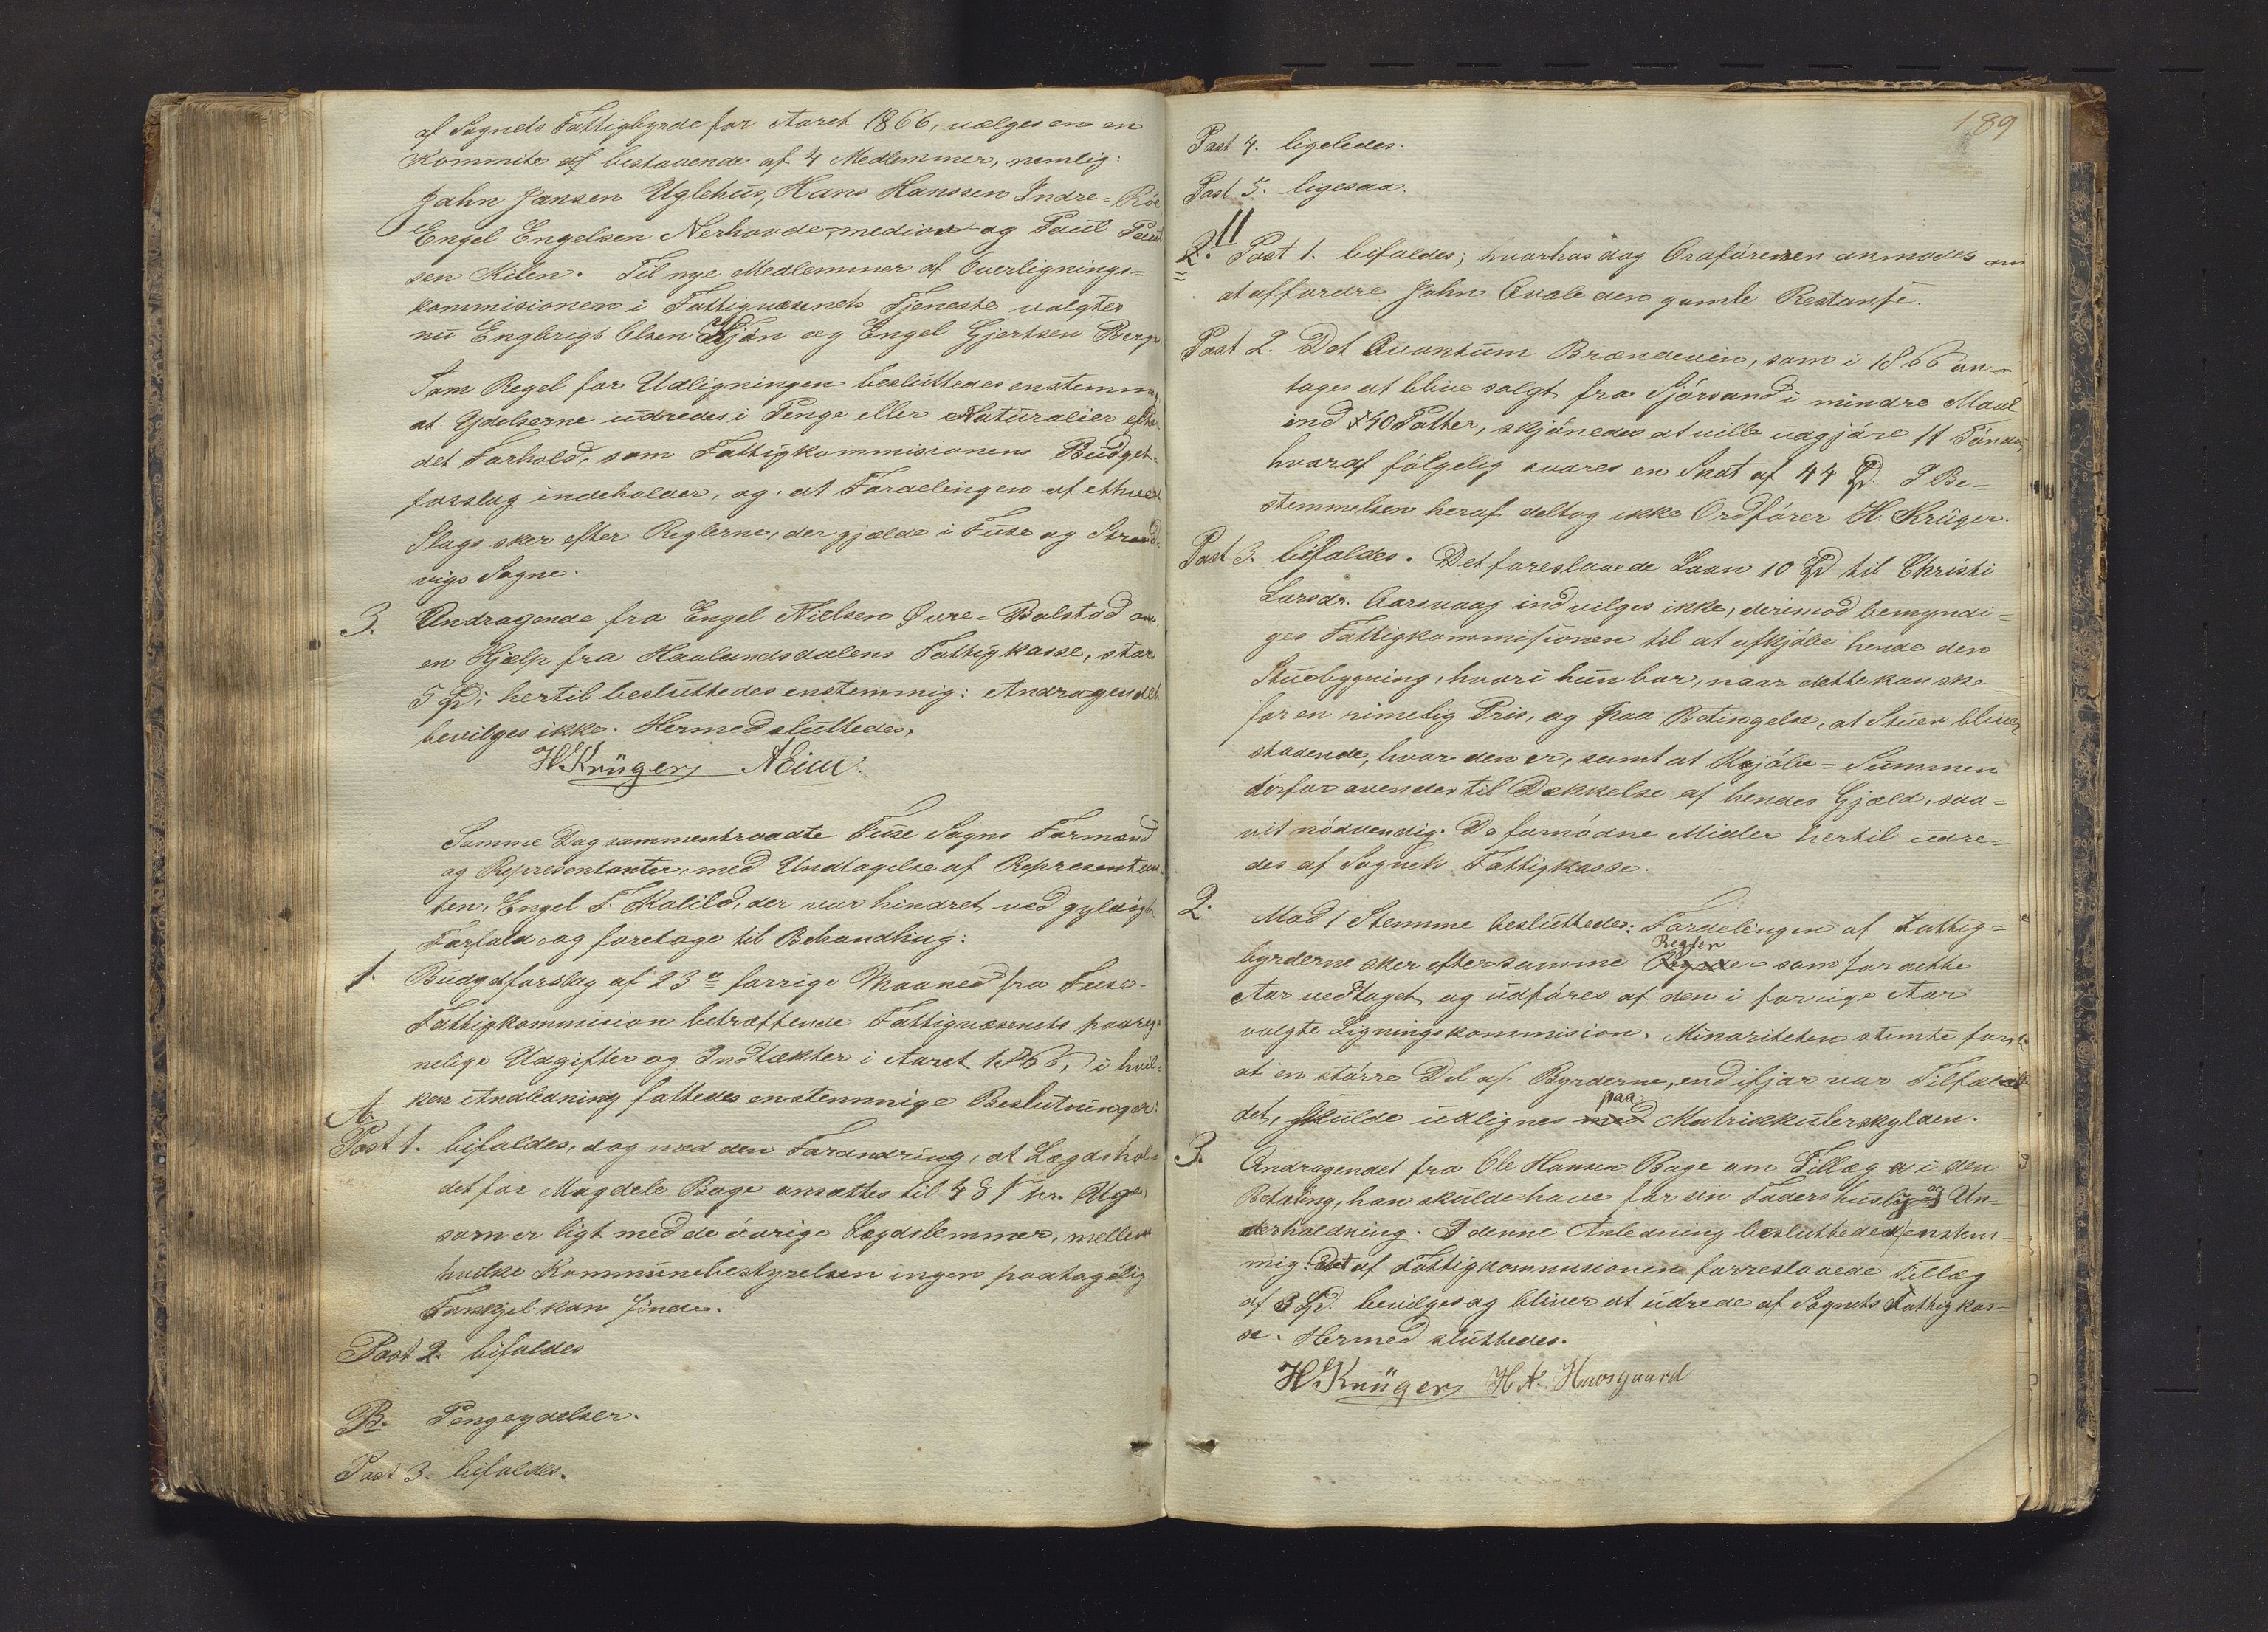 af Sognets Fattigbyrde for Aaret 1866, vælges en en
Kommite af bestaaende af 4 Medlemmer, nemlig:
John Jansen Uglehus, Hans Hanssen Indre-Röe
Engel Engelsen Nerhovde og Paul Paul
sen Kilen. Til nye Medlemmer af Overlignings=
kommisionen i Fattigvæsenets Tjeneste valgtes
nu Engbrigt Olsen og Engel Gjertsen Berge
Som Regel for Udligningen besluttedes enstemmig,
at Ydelserne udredes i Penge eller Naturalier efter
det Forhold, som Fattigkommisionens Budget-
forslag indeholder, og at Fordelingen af ethvert
Slags sker efter Reglerne, der gjælde i Fuse og Strand-
vigs Sogne.
3. Andragende fra Engel Nielsen Øvre-Bolstad om
en Hjælp fra Haalandsdalens Fattigkasse, stor
5 Spd; hertil besluttedes enstemmig: Andragendet
bevilges ikke. Hermed sluttedes.
H Krüger AEim
Samme Dag sammentraadte Fuse Sogns Formænd
og Representanter, med Undtagelse af Representan-
ten, Engel T. Kolild, der var hindret ved gyldigt
Forfald og foretoge til Behandling:
1. Budgetforslag af 23de forrige Maaned fra Fuse-
Fattigkommision betræffende Fattigvæsenets paareg-
nelige Udgifter og Indtækter i Aaret 1866, i hvil-
ken Andledning fattedes enstemmige Beslutninger:
A.
Post 1. bifaldes, dog med den Forandring, at Lægdshol-
det for Magdele Bage ansættes til 48 ß pr. Uge,
som er ligt med de övrige Lægdslemmer, mellem
hvilke Kommunebestyrelsen ingen paatagelig
Forskjel kan finde.
Post 2. bifaldes
B. Pengeydelser.
Post 3. bifaldes.
189
Post 4. ligeledes.
Post 5. ligesaa.
11
2. Post 1. bifaldes; hvorhos dog Ordföreren anmodes om
at affordre John Qvale den gamle Restanse.
Post 2. Det Qvantum Brændeviin, som i 1866 an-
tages at blive solgt fra Sjörsand i mindre Maal
end 40 Potter, skjönedes at ville udgjöre 11 Tönder,
hvoraf fölgelig svares en Skat af 44 Spd. I Be-
stemmelsen heraf deltog ikke Ordförer H. Krüger.
Post 3. bifaldes. Det foreslaaede Laan 10 Spd til Christi
Larsdr. Aarsvaag indvilges ikke, derimod bemyndi-
ges Fattigkommisionen til at afkjöbe hende den
Stuebygning, hvori hun bor, naar dette kan ske
for en rimelig Pris, og paa Betingelse, at Stuen bliver
staaende, hvor den er, samt at Kjöbe=Summen
derfor anvendes til Dækkelse af hendes Gjæld, saa-
vit nödvendig. De fornödne Midler hertil udre-
des af Sognets Fattigkasse.
2. Mod 1 Stemme besluttedes: Fordelingen af Fattig=
Regler
byrderne sker efter samme som for dette
Aar vedtaget, og udföres af den i forrige Aar
valgte Ligningskommision. Minoriteten stemte for,
at en större Del af Byrderne, end ifjor var Tilfæl-
paa
det, skulde udlignes med Matrikkulerskylden.
3. Andragendet fra Ole Hansen Bage om Tillæg i den
Betaling, han skulde have for sin Faders huslig og Un-
derholdning. I denne Anledning besluttedes enstem-
mig: Det af Fattigkommisionen forreslaaede Tillæg
af 3 Spd. bevilges og bliver at udrede af Sognets Fattigkas=
se. Hermed sluttedes.
H Krüger H A. Havsgaard